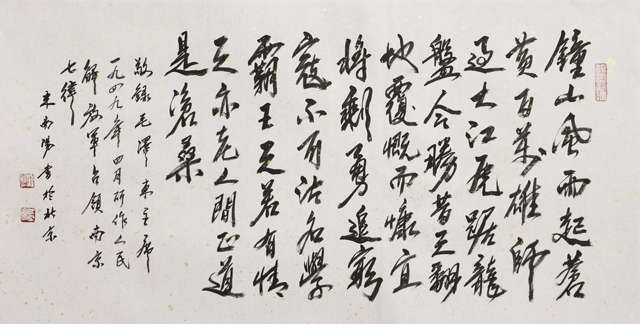 鐘山風雨起蒼
黃百萬雄師
過大江虎踞龍
盤今勝昔天翻
地覆慨而慷宜
將剩勇追窮
寇不可沽名學
霸王天若有情
天亦老人間正道
是滄桑
敬錄毛澤東主席
一九四九年四月所作人民
解放軍占領南京
七律
南陽書於北京